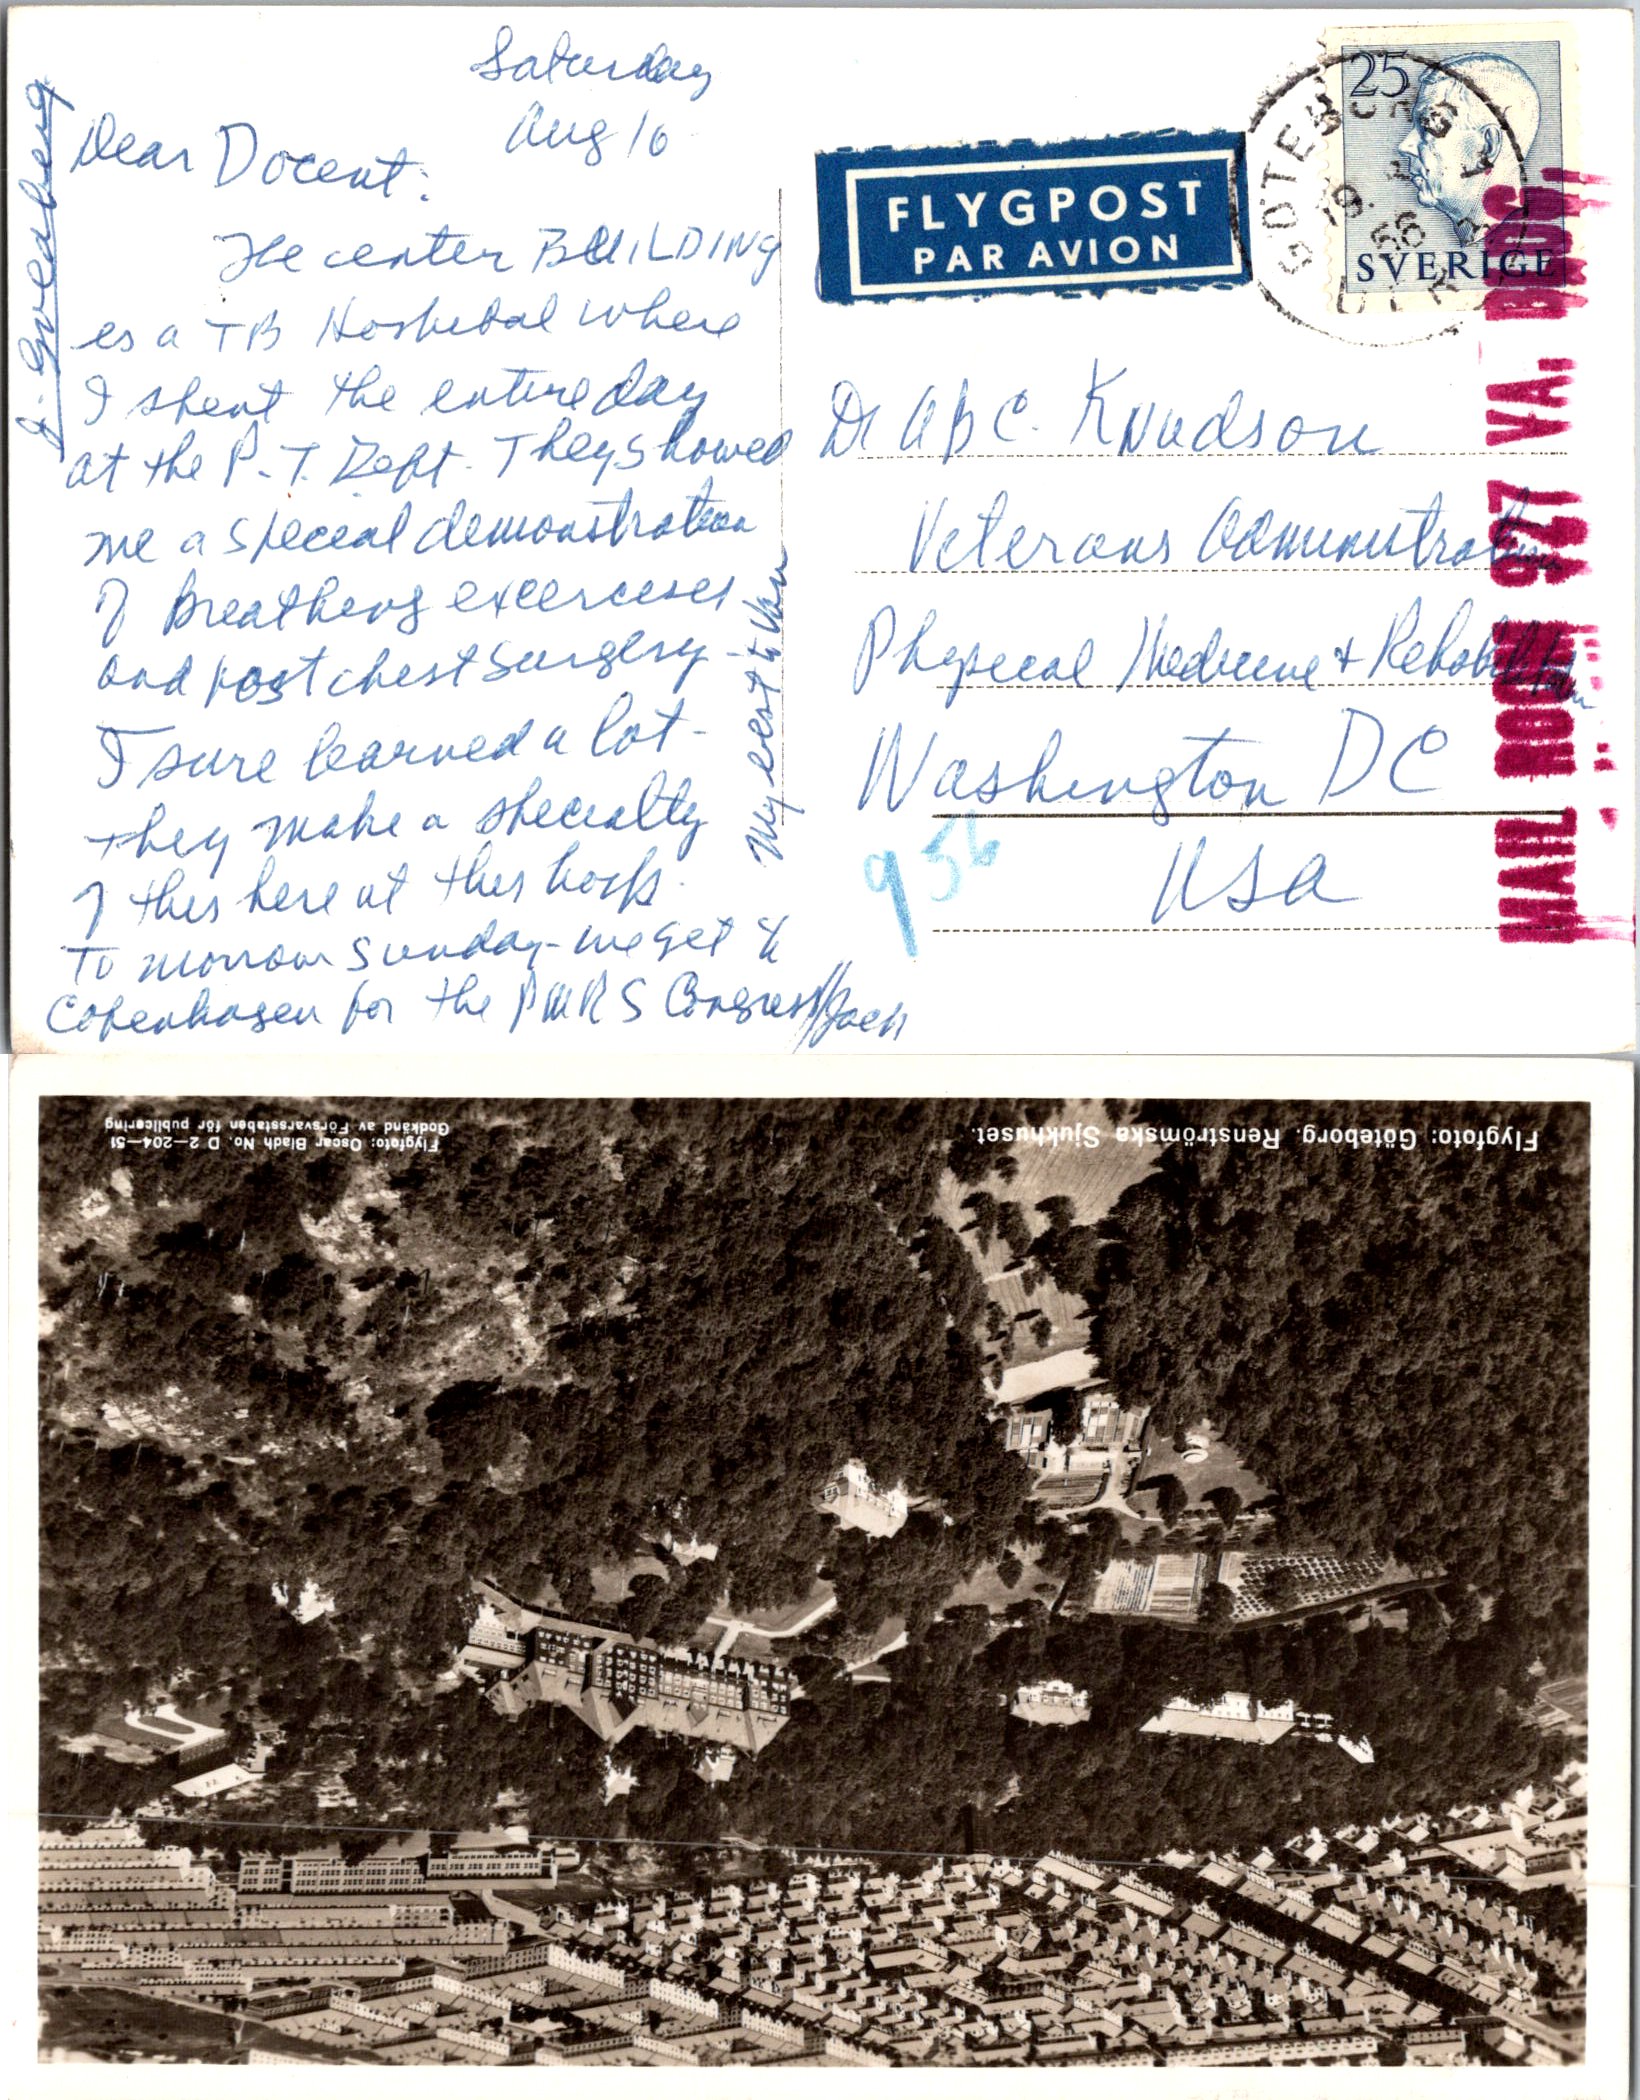 Saturday
Aug 10
Dear Docent:
The center BUILDING
is a TB Hospital where
I spent the entire day
at the P.T. Dept. They showed
me a special demonstration
of Breathing excercises
and post chest surgery -
I sure learned a lot -
they make a specialty
of this here at this hosp.
To morrow Sunday - we get to
Copenhagen for the PM&RS Congress // Jack
My best to
FLYGPOST
PAR AVION
25
SVERIGE
GÖTEBORG
19.
56
Dr A B C. Knudson
Veterans Administration
Physical Medicine & Rehabilitation
Washington DC
USA
956
MAIL ROOM 927 VA. BLDG.
Flygfoto: Göteborg. Renströmska Sjukhuset.
Flygfoto: Oscar Bladh No. D 2—204—51
Godkänd av Försvarsstaben för publicering